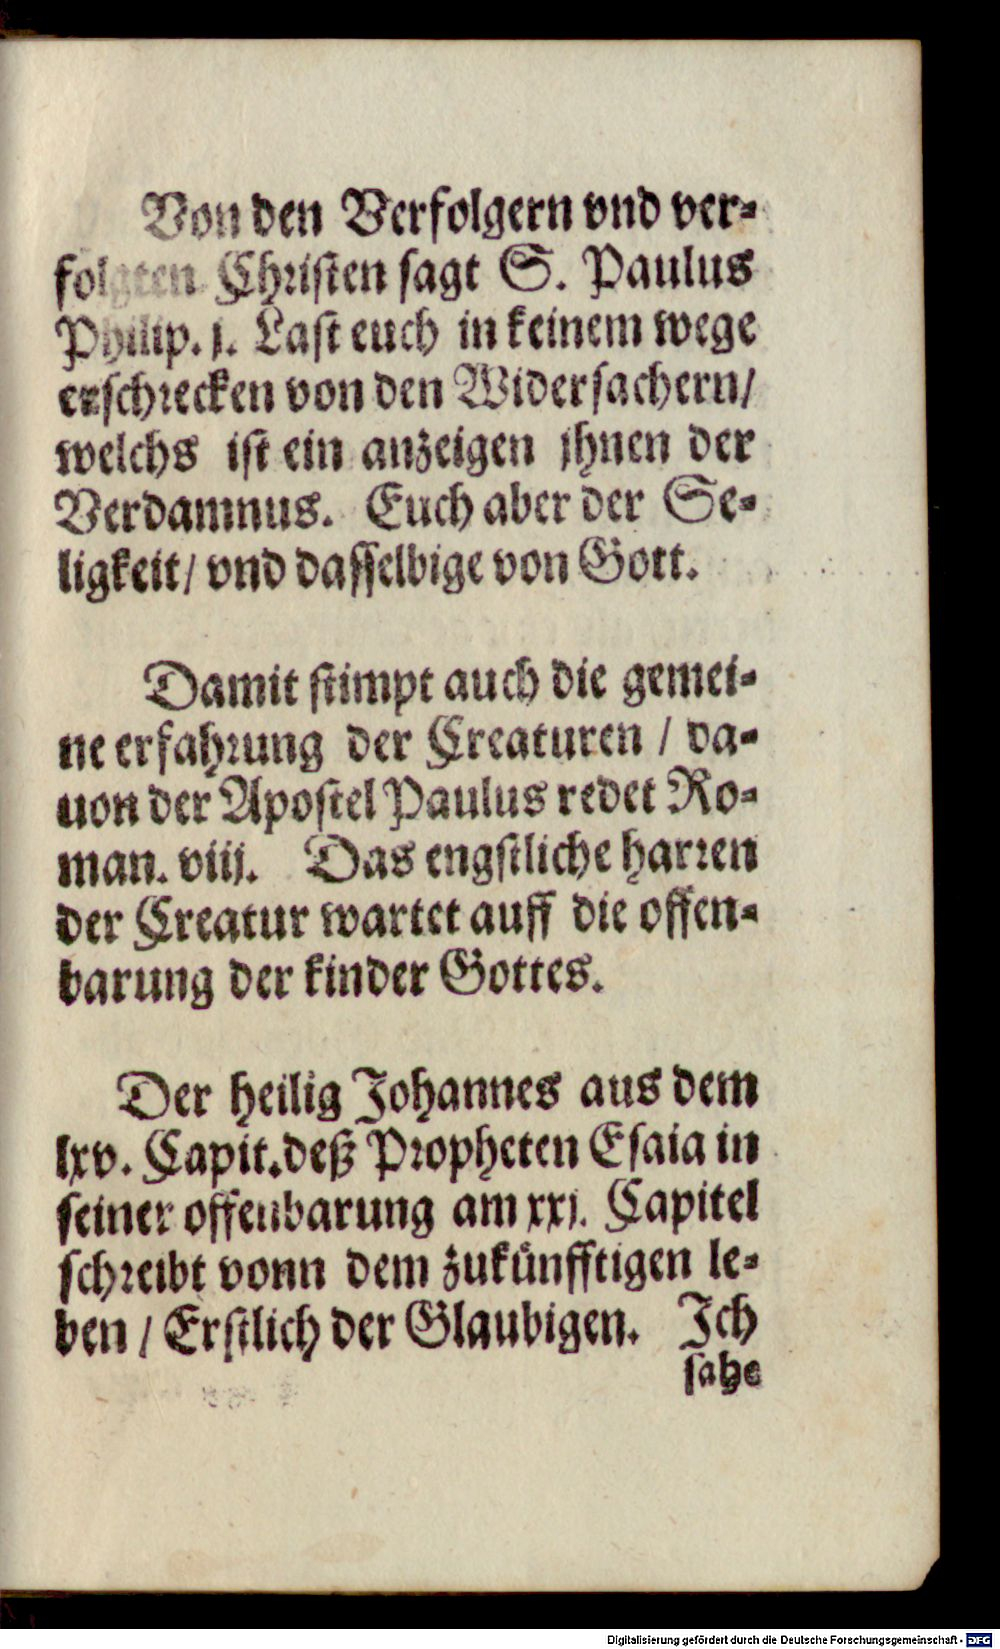 Von den Verfolgern vnd ver-
folgten Christen sagt S. Paulus
Philip. j. Last euch in keinem wege
erschrecken von den Widersachern/
welchs ist ein anzeigen jhnen der
Verdamnus. Euch aber der Se-
ligkeit/ vnd dasselbige von Gott.
Damit stimpt auch die gemei-
ne erfahrung der Creaturen / da-
uon der Apostel Paulus redet Ro-
man. viij. Das engstliche harren
der Creatur wartet auff die offen-
barung der kinder Gottes.
Der heilig Johannes aus dem
lxv. Capit. deß Propheten Esaia in
seiner offenbarung am xxj. Capitel
schreibt vonn dem zukünfftigen le-
ben / Erstlich der Glaubigen. Ich
sahe
Digitalisierung gefördert durch die Deutsche Forschungsgemeinschaft - DFG